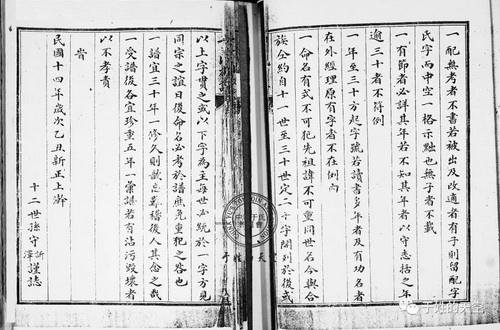 一配無考者不書若被出及改適者有子則留配字
氏字而中空一格示黜也無子者不載
一有節者必詳其年若不知其年者以守志括之年
逾三十者不得例
一年至三十方起字號若讀書多年者及有功名者
在外經理原有字者不在例內
一命名有式不可犯先祖諱不可重同世名今與合
族公約自十一世至三十世定二十字開列於後或
以上字貫之或以下字為主每世必統於一字方見
同宗之誼日後命名必考於譜應免重犯之咎也
一譜宜三十年一修久則散忘難稽後人其念之哉
一受譜後各宜珍重五年一彙譜若有沾污毀壞者
以不孝責
旹
民國十四年歲次乙丑新正上澣
十二世孫守訢澤謹志
于姓的天空
于姓的天空